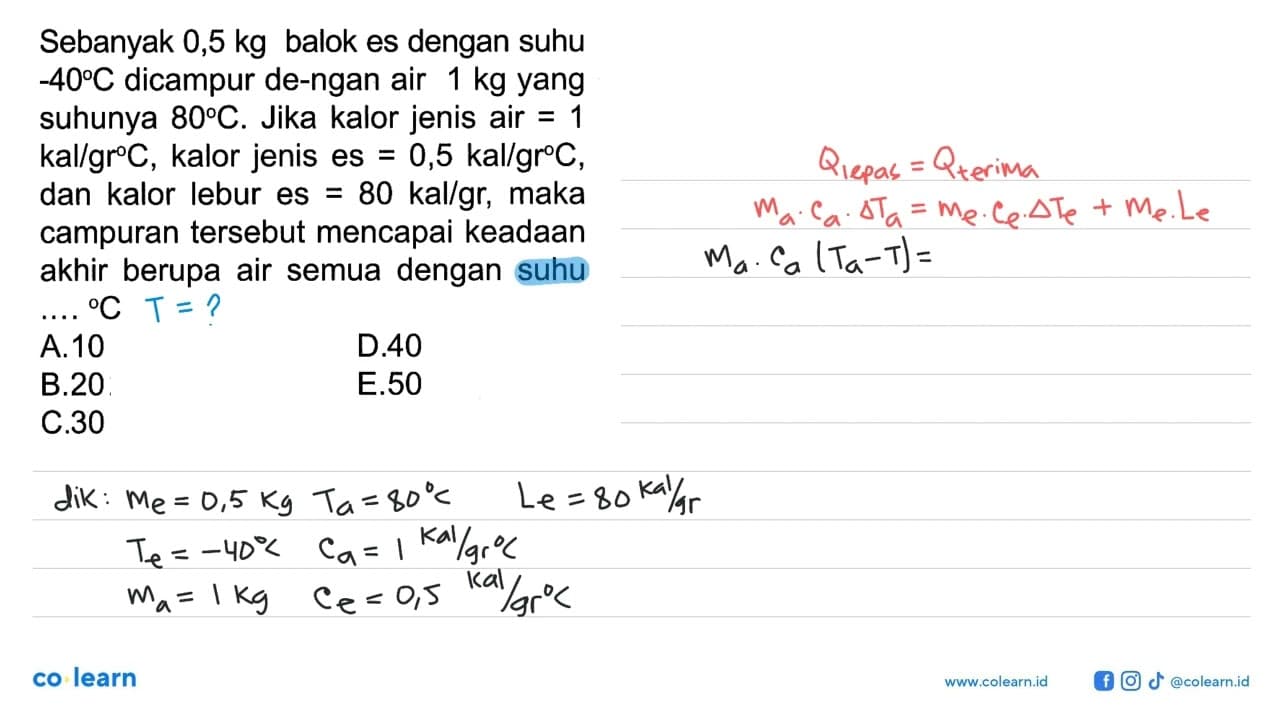 Sebanyak 0,5 kg balok es dengan suhu
-40°C dicampur de-ngan air 1 kg yang
suhunya 80°C. Jika kalor jenis air = 1
kal/gr°C, kalor jenis es = 0,5 kal/gr°C,
dan kalor lebur es = 80 kal/gr, maka
campuran tersebut mencapai keadaan
akhir berupa air semua dengan suhu
.... °C T = ?
A.10 D.40
B.20 E.50
C.30
Qlepas = Qterima
ma. ca. ΔTa = me. ce. ΔTe + me. Le
ma. ca (Ta-T) =
dik: me = 0,5 kg Ta = 80°C Le = 80 kal/gr
Te = -40°C ca = 1 kal/gr°C
ma = 1 kg ce = 0,5 kal/gr°C
co learn
www.colearn.id @colearn.id